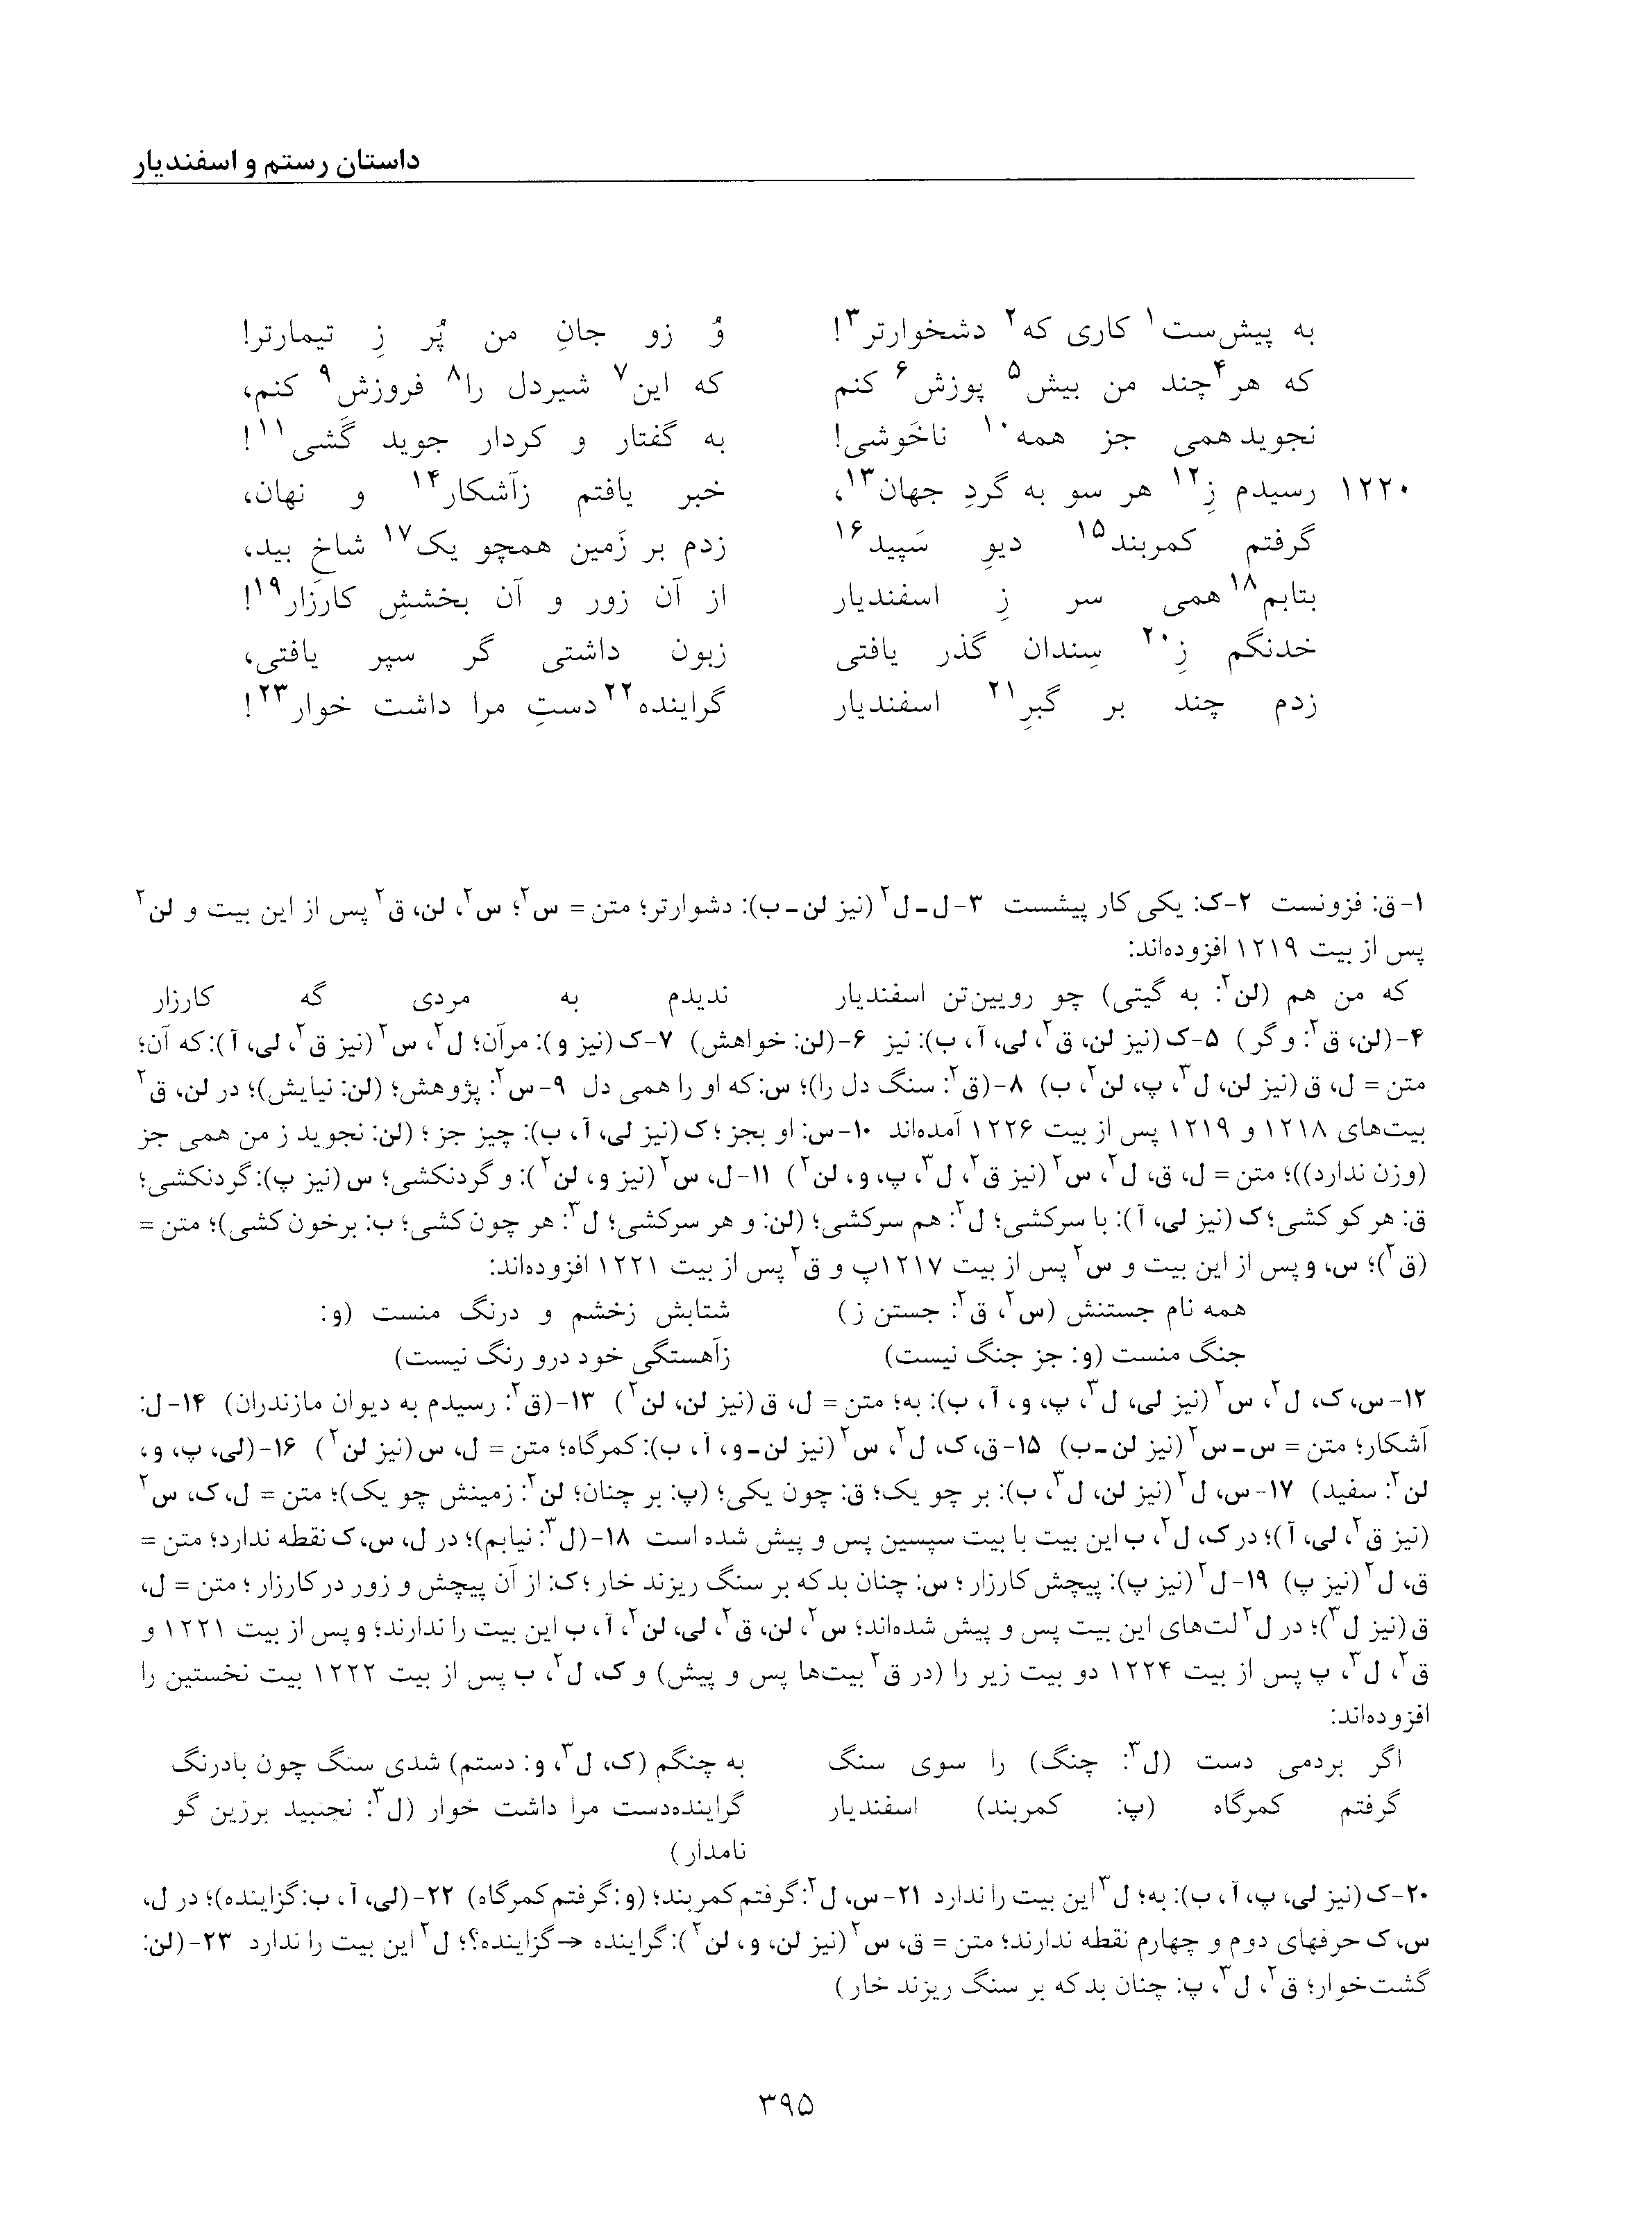 داستان رستم و اسفندیار
به پیش‌ست۱ کاری که۲ دشخوارتر۳! وُ زو جانِ من پُر زِ تیمارتر!
که هر۴چند من بیش۵ پوزش۶ کنم که این۷ شیردل را۸ فروزش۹ کنم،
نجوید همی جز همه۱۰ ناخَوشی! به گفتار و کردار جوید گَشی۱۱!
۱۲۲۰ رسیدم زِ۱۲ هر سو به گردِ جهان۱۳، خبر یافتم زآشکار۱۴ و نهان،
گرفتم کمربند۱۵ دیوِ سَپید۱۶ زدم بر زَمین همچو یک۱۷ شاخِ بید،
بتابم۱۸ همی سر زِ اسفندیار از آن زور و آن بخششِ کارَزار۱۹!
خدنگم زِ۲۰ سِندان گذر یافتی زبون داشتی گر سپر یافتی،
زدم چند بر گبرِ۲۱ اسفندیار گراینده۲۲ دستِ مرا داشت خوار۲۳!
۱-ق: فزونست ۲-ک: یکی کار پیشست ۳-ل-ل۲ (نیز لن-ب): دشوارتر؛ متن = س۲؛ س۲، لن، ق۲ پس از این بیت و لن۲
پس از بیت ۱۲۱۹ افزوده‌اند:
که من هم (لن۲: به گیتی) چو رویین‌تن اسفندیار ندیدم به مردی گه کارزار
۴-(لن، ق۲: و گر) ۵-ک (نیز لن، ق۲، لی، آ، ب): نیز ۶-(لن: خواهش) ۷-ک (نیز و): مرآن؛ ل۲، س۲ (نیز ق۲، لی، آ): که آن؛
متن = ل، ق (نیز لن، ل۳، پ، لن۲، ب) ۸-(ق۲: سنگ دل را)؛ س: که او را همی دل ۹-س۲: پژوهش؛ (لن: نیایش)؛ در لن، ق۲
بیت‌های ۱۲۱۸ و ۱۲۱۹ پس از بیت ۱۲۲۶ آمده‌اند ۱۰-س: او بجز؛ ک (نیز لی، آ، ب): چیز جز؛ (لن: نجوید ز من همی جز
(وزن ندارد))؛ متن = ل، ق، ل۲، س۲ (نیز ق۲، ل۳، پ، و، لن۲) ۱۱-ل، س۲ (نیز و، لن۲): و گردنکشی؛ س (نیز پ): گردنکشی؛
ق: هر کو کشی؛ ک (نیز لی، آ): با سرکشی؛ ل۲: هم سرکشی؛ (لن: و هر سرکشی؛ ل۳: هر چون کشی؛ ب: برخون کشی)؛ متن =
(ق۲)؛ س، و پس از این بیت و س۲ پس از بیت ۱۲۱۷پ و ق۲ پس از بیت ۱۲۲۱ افزوده‌اند:
همه نام جستنش (س۲، ق۲: جستن ز) شتابش زخشم و درنگ منست (و:
جنگ منست (و: جز جنگ نیست) زآهستگی خود درو رنگ نیست)
۱۲-س، ک، ل۲، س۲ (نیز لی، ل۳، پ، و، آ، ب): به؛ متن = ل، ق (نیز لن، لن۲) ۱۳-(ق۲: رسیدم به دیوان مازندران) ۱۴-ل:
آشکار؛ متن = س-س۲ (نیز لن-ب) ۱۵-ق، ک، ل۲، س۲ (نیز لن-و، آ، ب): کمرگاه؛ متن = ل، س (نیز لن۲) ۱۶-(لی، پ، و،
لن۲: سفید) ۱۷-س، ل۲ (نیز لن، ل۳، ب): بر چو یک؛ ق: چون یکی؛ (پ: بر چنان؛ لن۲: زمینش چو یک)؛ متن = ل، ک، س۲
(نیز ق۲، لی، آ)؛ در ک، ل۲، ب این بیت با بیت سپسین پس و پیش شده است ۱۸-(ل۳: نیابم)؛ در ل، س، ک نقطه ندارد؛ متن =
ق، ل۲ (نیز پ) ۱۹-ل۲ (نیز پ): پیچش کارزار؛ س: چنان بد که بر سنگ ریزند خار؛ ک: از آن پیچش و زور در کارزار؛ متن = ل،
ق (نیز ل۳)؛ در ل۲ لت‌های این بیت پس و پیش شده‌اند؛ س۲، لن، ق۲، لی، لن۲، آ، ب این بیت را ندارند؛ و پس از بیت ۱۲۲۱ و
ق۲، ل۳، پ پس از بیت ۱۲۲۴ دو بیت زیر را (در ق۲ بیت‌ها پس و پیش) و ک، ل۲، ب پس از بیت ۱۲۲۲ بیت نخستین را
افزوده‌اند:
اگر بردمی دست (ل۳: چنگ) را سوی سنگ به چنگم (ک، ل۳، و: دستم) شدی سنگ چون بادرنگ
گرفتم کمرگاه (پ: کمربند) اسفندیار گراینده‌دست مرا داشت خوار (ل۳: نجنبید برزین گو
نامدار)
۲۰-ک (نیز لی، پ، آ، ب): به؛ ل۳ این بیت را ندارد ۲۱-س، ل۲: گرفتم کمربند؛ (و: گرفتم کمرگاه) ۲۲-(لی، آ، ب: گزاینده)؛ در ل،
س، ک حرفهای دوم و چهارم نقطه ندارند؛ متن = ق، س۲ (نیز لن، و، لن۲): گراینده ← گزاینده؟؛ ل۲ این بیت را ندارد ۲۳-(لن:
گشت‌خوار؛ ق۲، ل۳، پ: چنان بد که بر سنگ ریزند خار)
۳۹۵